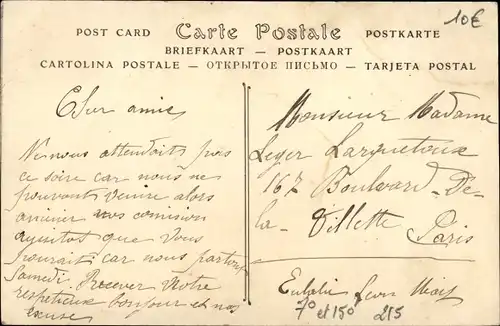 10€
POST CARD Carte Postale POSTKARTE
BRIEFKAART — POSTKAART
CARTOLINA POSTALE — ОТКРЫТОЕ ПИСЬМО — TARJETA POSTAL
Cher amie
Ne nous attendoit pas
ce soire car nous ne
pouvont venire alors
nos comision
que Vous
pourait car nous partons
Samedi. Recever Notre
respetieux bonjour et nos
Monsieur Madame
Leger Larquetoux
167 Boulvard-De-
la-Villette
Paris
7° et 150 215